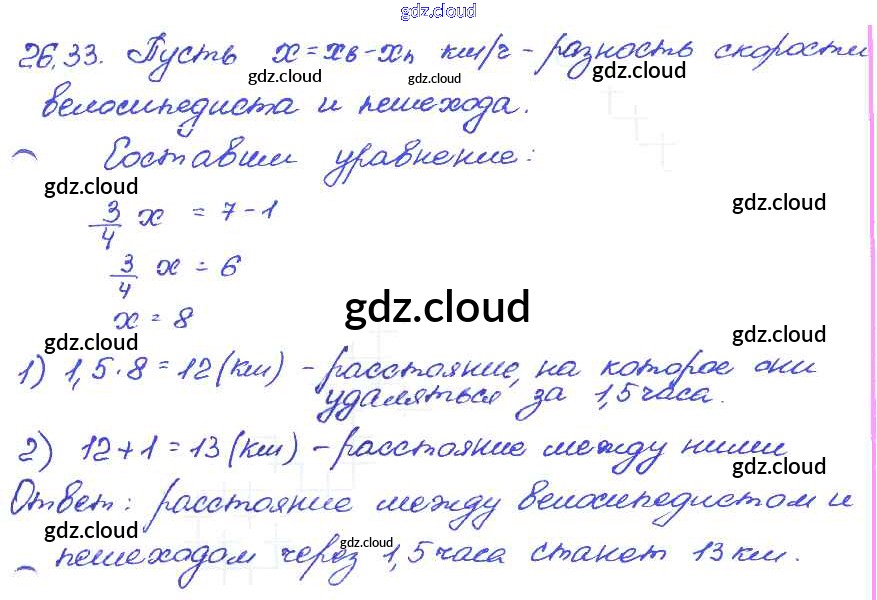 gdz.cloud
26.33. Пусть x = xв - xп км/г - разность скорости
gdz.cloud gdz.cloud gdz.cloud
велосипедиста и пешехода.
Составим уравнение:
gdz.cloud gdz.cloud
3/4 x = 7 - 1
3/4 x = 6
gdz.cloud
x = 8
gdz.cloud gdz.cloud
1) 1,5 · 8 = 12 (км) - расстояние, на которое они
удаляться за 1,5 часа.
2) 12 + 1 = 13 (км) - расстояние между ними
gdz.cloud
Ответ: расстояние между велосипедистом и
gdz.cloud gdz.cloud gdz.cloud
пешеходом через 1,5 часа станет 13 км.